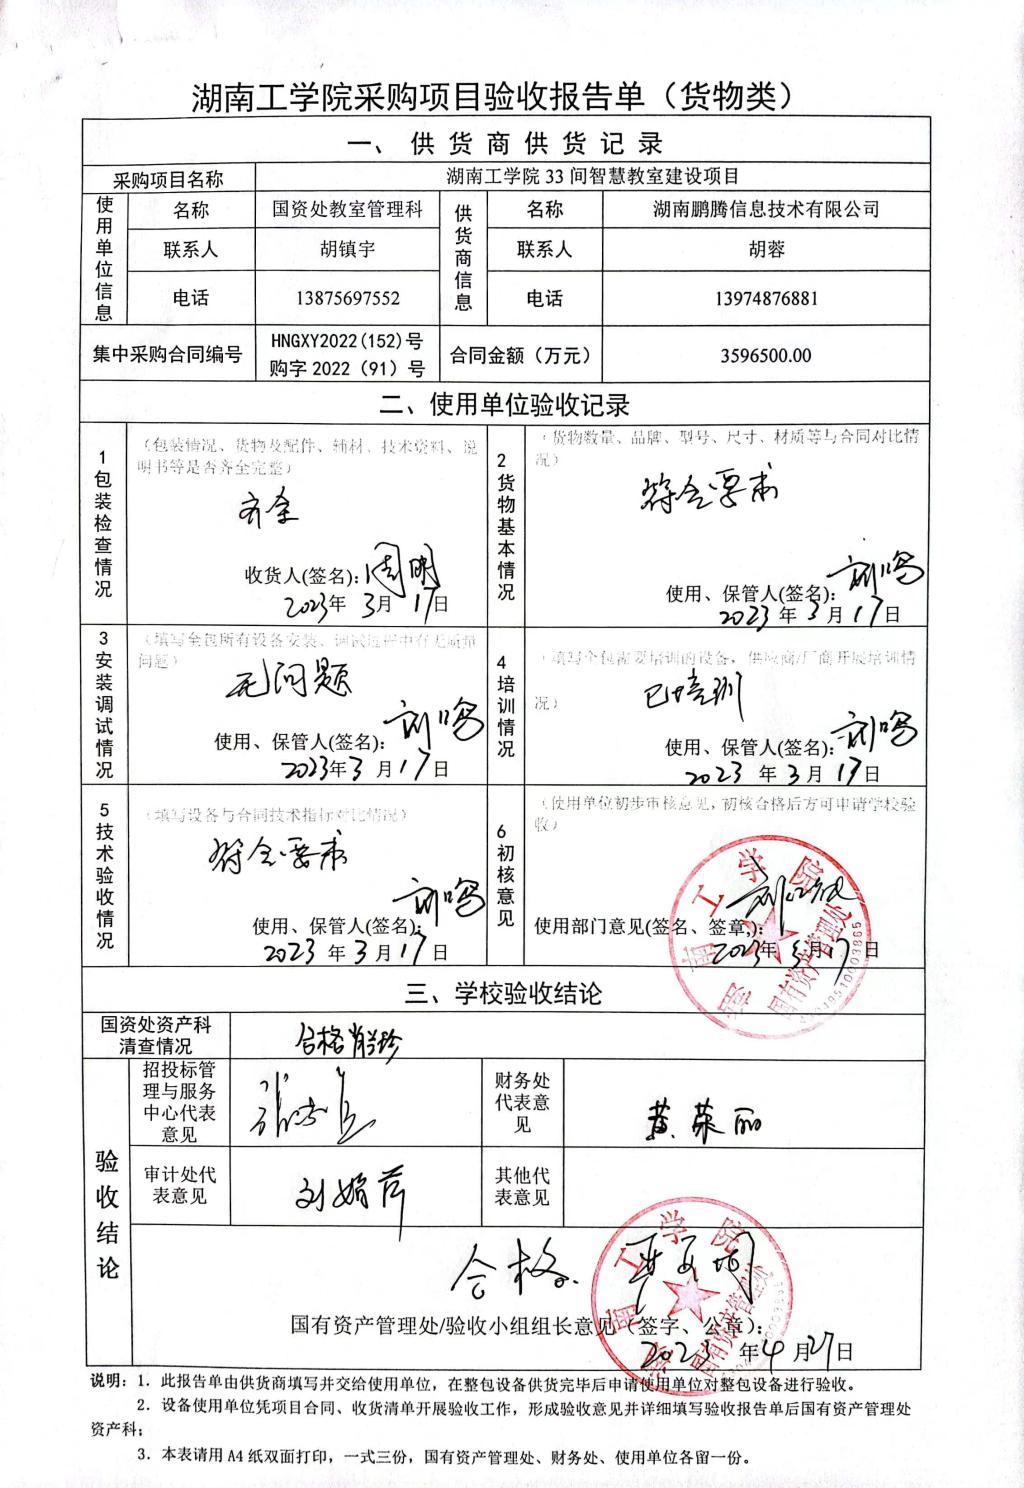 湖南工学院采购项目验收报告单（货物类）
一、供货商供货记录
采购项目名称
湖南工学院 33 间智慧教室建设项目
使用单位信息
名称
国资处教室管理科
供货商信息
名称
湖南鹏腾信息技术有限公司
联系人
胡镇宇
联系人
胡蓉
电话
13875697552
电话
13974876881
集中采购合同编号
HNGXY2022(152)号
购字 2022（91）号
合同金额（万元）
3596500.00
二、使用单位验收记录
1包装检查情况
（包装情况、货物及配件、辅材、技术资料、说
明书等是否齐全完整）
齐全
收货人(签名):周明
2023年 3月 17日
2货物基本情况
（货物数量、品牌、型号、尺寸、材质等与合同对比情
况）
符合要求
使用、保管人(签名):
2023 年 3月 17日
3安装调试情况
（填写全包所有设备安装、调试过程中有无质量
问题）
无问题
使用、保管人(签名):
2023年3月17日
4培训情况
（填写全包需要培训的设备，供应商/厂商开展培训情
况）
已培训
使用、保管人(签名):
2023 年 3月 17日
5技术验收情况
（填写设备与合同技术指标对比情况）
符合要求
使用、保管人(签名)
2023 年 3月17日
6初核意见
（使用单位初步审核意见，初核合格后方可申请学校验
收）
使用部门意见(签名、签章):
2023年 3月17日
湖南工学院
国有资产管理处
三、学校验收结论
国资处资产科
清查情况
合格
验收结论
招投标管
理与服务
中心代表
意见
财务处
代表意
见
黄荣丽
审计处代
表意见
刘娟芳
其他代
表意见
合格.
国有资产管理处/验收小组组长意见（签字、公章）:
2023 年4月27日
湖南工学院
国有资产管理处
说明：1. 此报告单由供货商填写并交给使用单位，在整包设备供货完毕后申请使用单位对整包设备进行验收。
2. 设备使用单位凭项目合同、收货清单开展验收工作，形成验收意见并详细填写验收报告单后国有资产管理处
资产科；
3. 本表请用 A4 纸双面打印，一式三份，国有资产管理处、财务处、使用单位各留一份。